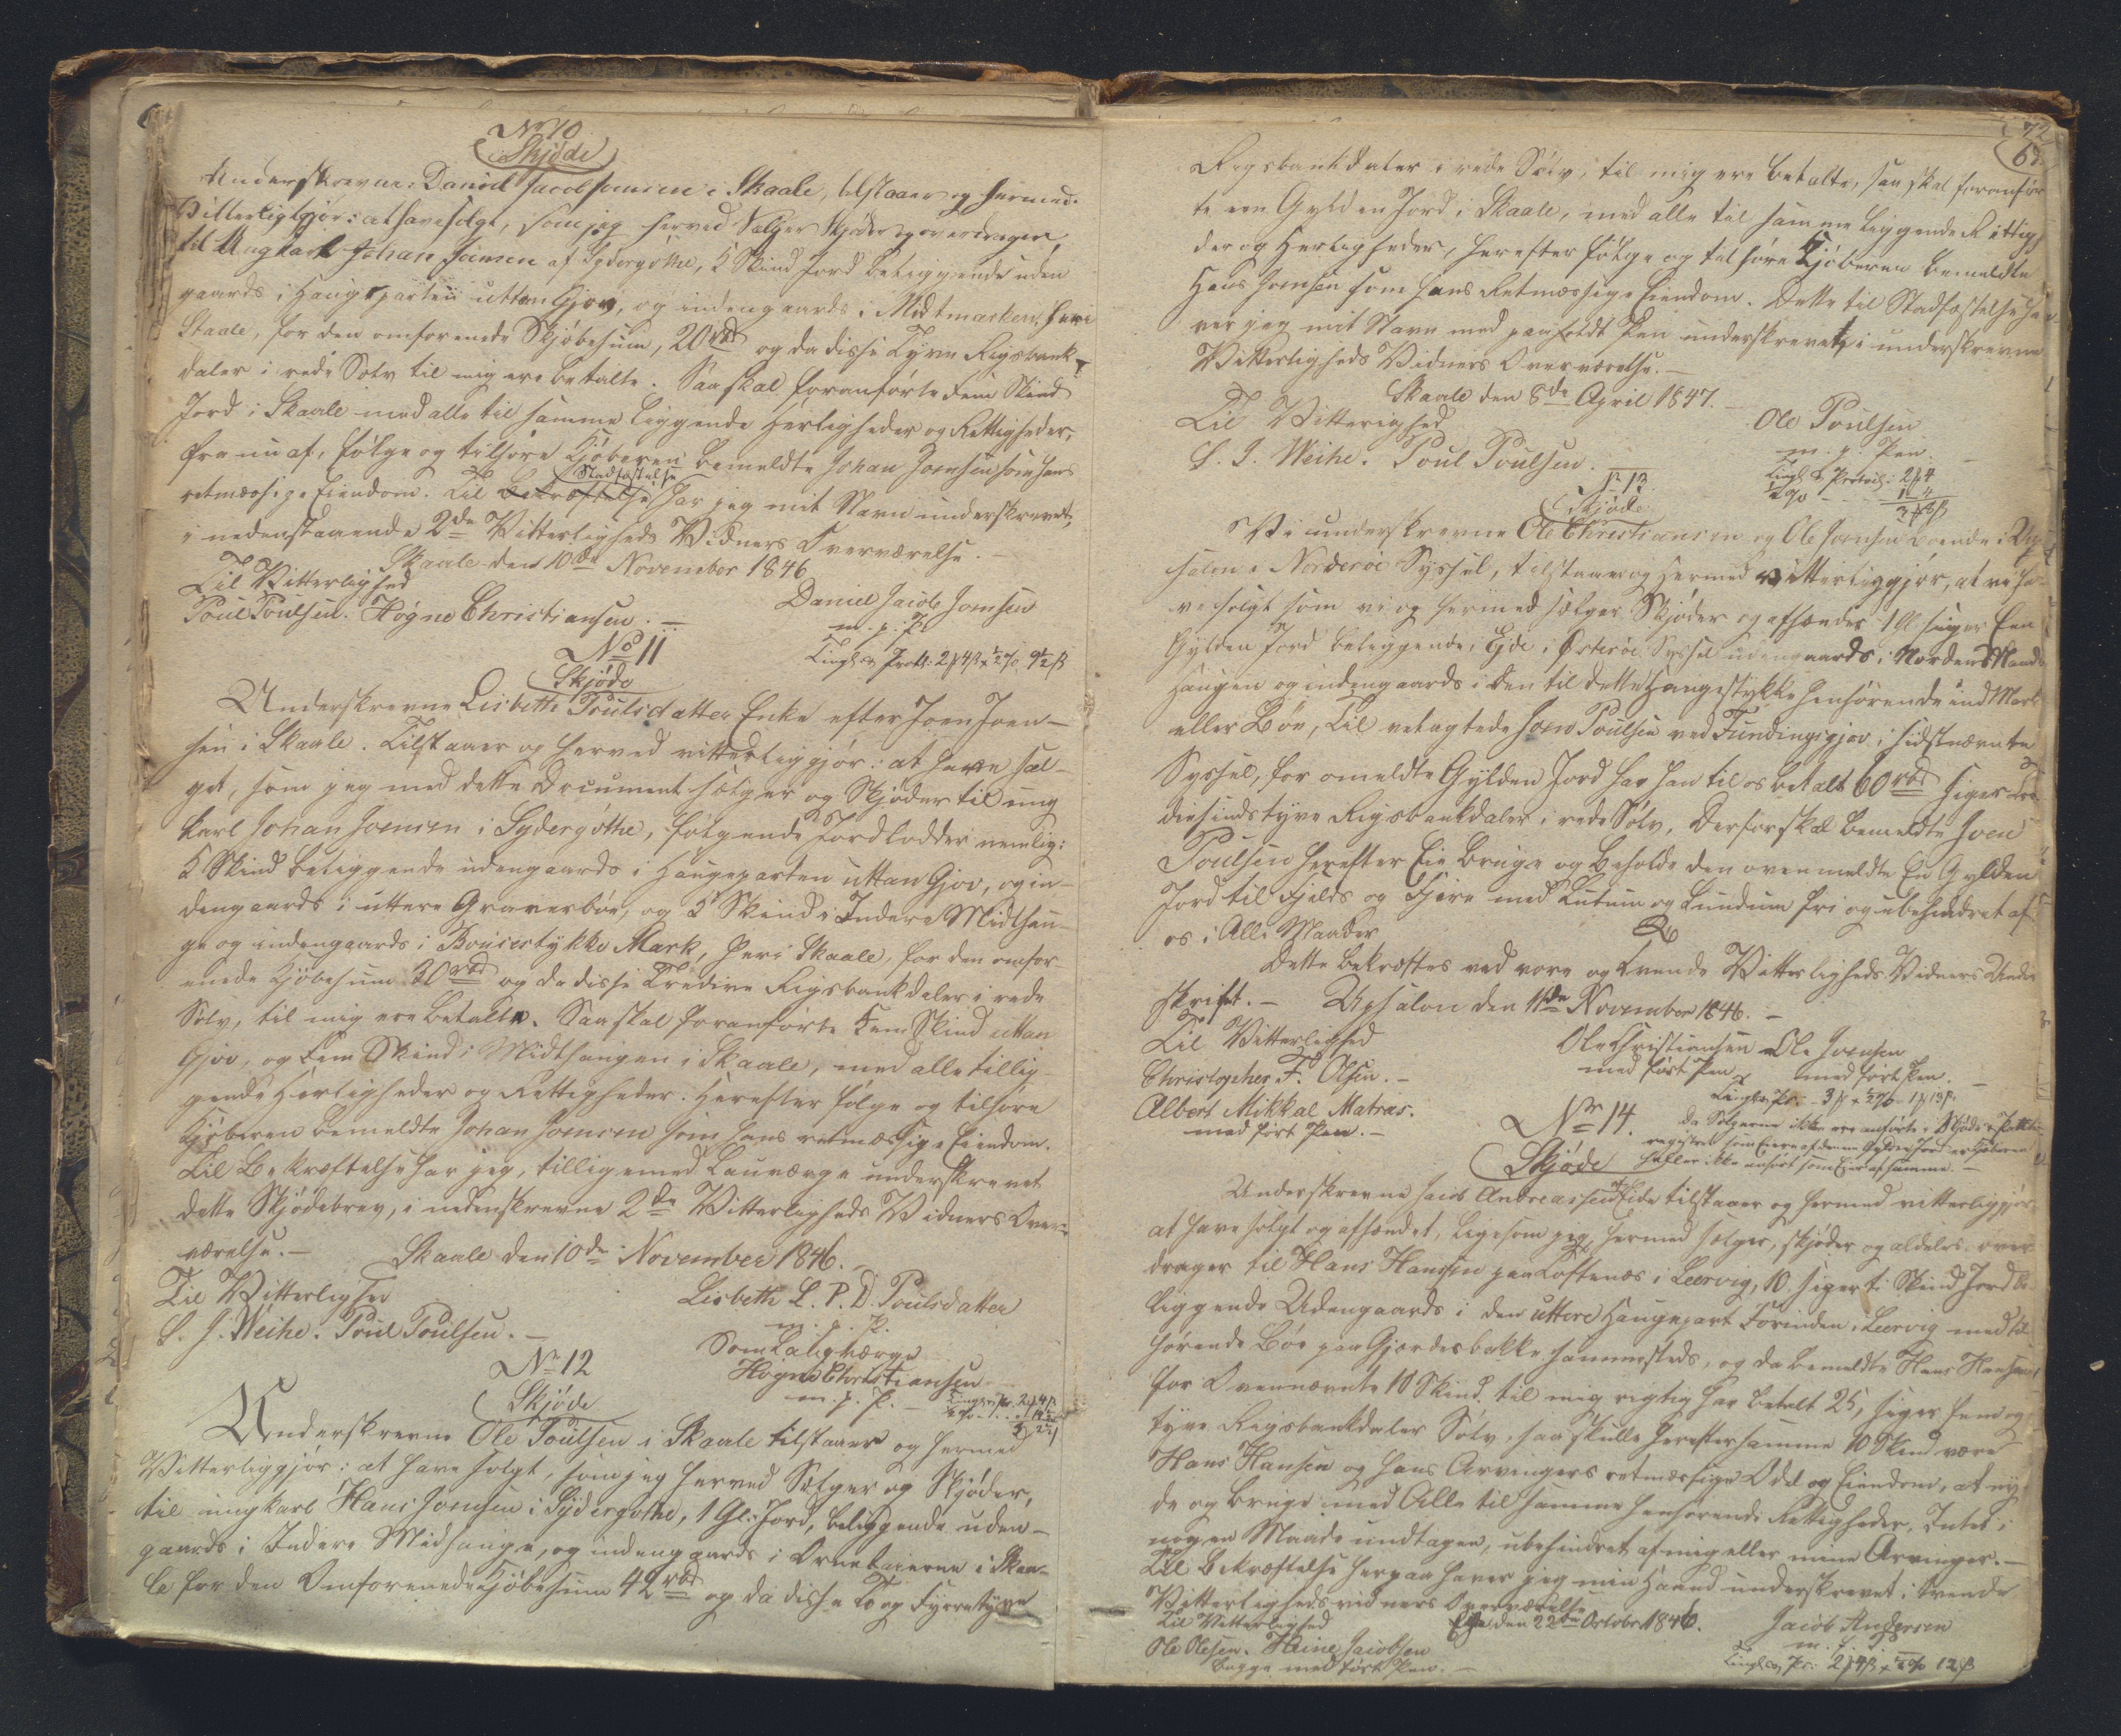 No 10
Skjöde
Underskrevne Daniel Jacob Joensen i Skaale, tilstaaer og hermed
Vitterliggjör: at have solgt, som jeg herved Sælger Skjöder og overdrager,
til Ungkarl Johan Joensen af Sydergöthe, 5 Skind Jord beliggende uden
gaards i Haugeparten uttan Gjov, og indengaards i Midtmarken, her i
Skaale, for den omforenede Kjöbesum, 20 rbd og da disse Tyve Rigsbank-
daler i rede Sölv til mig ere betalte. Saa skal foranförte Fem Skind
Jord i Skaale med alle til samme liggende Herligheder og Rettigheder,
fra nu af, fölge og tilhöre Kjöberen bemeldte Johan Joensen som hans
Stadfæstelse
retmæssige Eiendom. Til Bekræftelse har jeg mit Navn underskrevet,
i nedenstaaende 2de Vitterligheds Vidners Overværelse. –
Skaale den 10de November 1846
Til Vitterlighed
Daniel Jacob Joensen
Poul Poulsen. Högne Christiansen. –
m. p. P.
No 11
Skjöde
Underskrevne Lisbeth Poulsdatter Enke efter Joen Joen-
sen i Skaale. Tilstaaer og herved vitterliggjör: at have sæl-
get, som jeg med dette Document sælger og Skjöder til ung
karl Johan Joensen i Sydergöthe, fölgende Jordlodder nemlig:
5 Skind beliggende udengaards i Haugeparten uttan Gjov, og in-
dengaards i uttere Graverböe, og 5 Skind i Indere Midthau-
ge og indengaards i Bouerstykke Mark, her i Skaale, for den omfor-
enede Kjöbesum 30 rbd og da disse Tredive Rigsbankdaler i rede
Sölv, til mig ere betalte. Saa skal foranförte Fem Skind uttan
Gjov, og Fem Skind i Midthaugen i Skaale, med alle tillig-
gende Herligheder og Rettigheder. Herefter fölge og tilhöre
Kjöberen bemeldte Johan Joensen som hans retmæssige Eiendom.
Til Bekræftelse har jeg, tilligemed Lauværge underskrevet
dette Skjödebrev, i nedenskrevne 2de Vitterligheds Vidners Over-
værelse. – Skaale den 10de November 1846. –
Til Vitterlighed
Lisbeth L. P. D. Poulsdatter
S. J. Weihe. Poul Poulsen. –
m. p. P.
Som Laugværge
Högne Christiansen
m. p. P. –
No 12
Skjöde
Underskrevne Ole Poulsen i Skaale tilstaaer og hermed
Vitterliggjör: at have solgt, som jeg herved Sælger og Skjöder,
til ungkarl Hans Joensen i Sydergöthe, 1 Gl. Jord, beliggende uden-
gaards i Indere Midhauge, og indengaards i i Skaa-
le for den Omforenede Kjöbesum 42 rbd og da disse To og Fyrretyve
72
Rigsbankdaler i rede Sölv, til mig ere betalte, saa skal foranför
te een Gylden Jord i Skaale, med alle til samme liggende Rettighe
der og Herligheder, herefter fölge og tilhöre Kjöberen bemeldte
Hans Joensen som hans Retmæssige Eiendom. Dette til Stadfæstelse ha
ver jeg mit Navn med paaholdt Pen underskrevet, i underskrevne
Vitterligheds Vidners Overværelse. –
Skaale den 8de April 1847. –
Til Vitterighed
Ole Poulsen
S. J. Weihe. Poul Poulsen. –
m. p. Pen.
No 13
Skjöde
Vi underskrevne Ole Christiansen og Ole Joensen boende i Up
salen i Norderöe Syssel, tilstaaer og hermed vitterliggjör, at vi ha-
ve solgt som vi og hermed sælger Skjöder og afhænder 1 Gl. siger Een
Gylden Jord beliggende i Ejde i Österöe Syssel udengaards i Norden
Haugen og indengaards i den til dette Haugestykke henhörende ind Mark
eller Böe, Til velagtede Joen Poulsen ved Fundingsgjov i sidstnævnte
Syssel, for omeldte Gylden Jord har han til os betalt 60 rbd siger tre
diesindstyve Rigsbankdaler i rede Sölv, Derfor skal bemeldte Joen
Poulsen herefter Eie bruge og beholde den ovenmeldte Een Gylden
Jord til Fjelds og Fjære med Lutum og Lundum fri og ubehindret af
os i Alle Maader
Dette bekræftes ved vore og tvende Vitterligheds Vidners Under
skrift. – Upsalon den 11de November 1846. –
Til Vitterlighed
Ole Christiansen Ole Joensen
Christopher F. Olsen. –
med fört Pen med fört Pen. –
Albert Mikkal Matras.
med fört Pen. –
Nr 14.
Da Sælgerne ikke ere anförte i
som Eiere af denne Gylden Jord er Kjöberen
heller ikke anfört som Eier af samme. –
Skjöde
Underskrevne Jacob Andreassen af Eide tilstaaer og hermed vitterliggjör,
at have solgt og afhændet, ligesom jeg hermed sælger, skjöder og aldeles over
drager til Hans Hansen paa Toftenæs i Leervig, 10. siger ti Skind Jord be
liggende Udengaards i den uttere Haugepart Forinden i Leervig med til
hörende Böe paa Gjerdesbakke sammesteds, og da bemeldte Hans Hansen
for Ovennævnte 10 Skind til mig rigtig har betalt 25, siger fem og
tyve Rigsbankdaler Sölv, saa skulle herefter samme 10 Skind være
Hans Hansen og hans Arvingers retmæssige Odel og Eiendom, at ny
de og bruge med Alle til samme henhörende Rettigheder, Intet i
nogen Maade undtagen, ubehindret af mig eller mine Arvinger. –
Til Bekræftelse herpaa haver jeg min Haand underskrevet i tvende
Vitterligheds vidners Overværelse
Til Vitterlighed
Eide den 22de October 1846.
Jacob Andersen
Ole Olesen. Heine Jacobsen
m. f. P.
begge med fört Pen. –